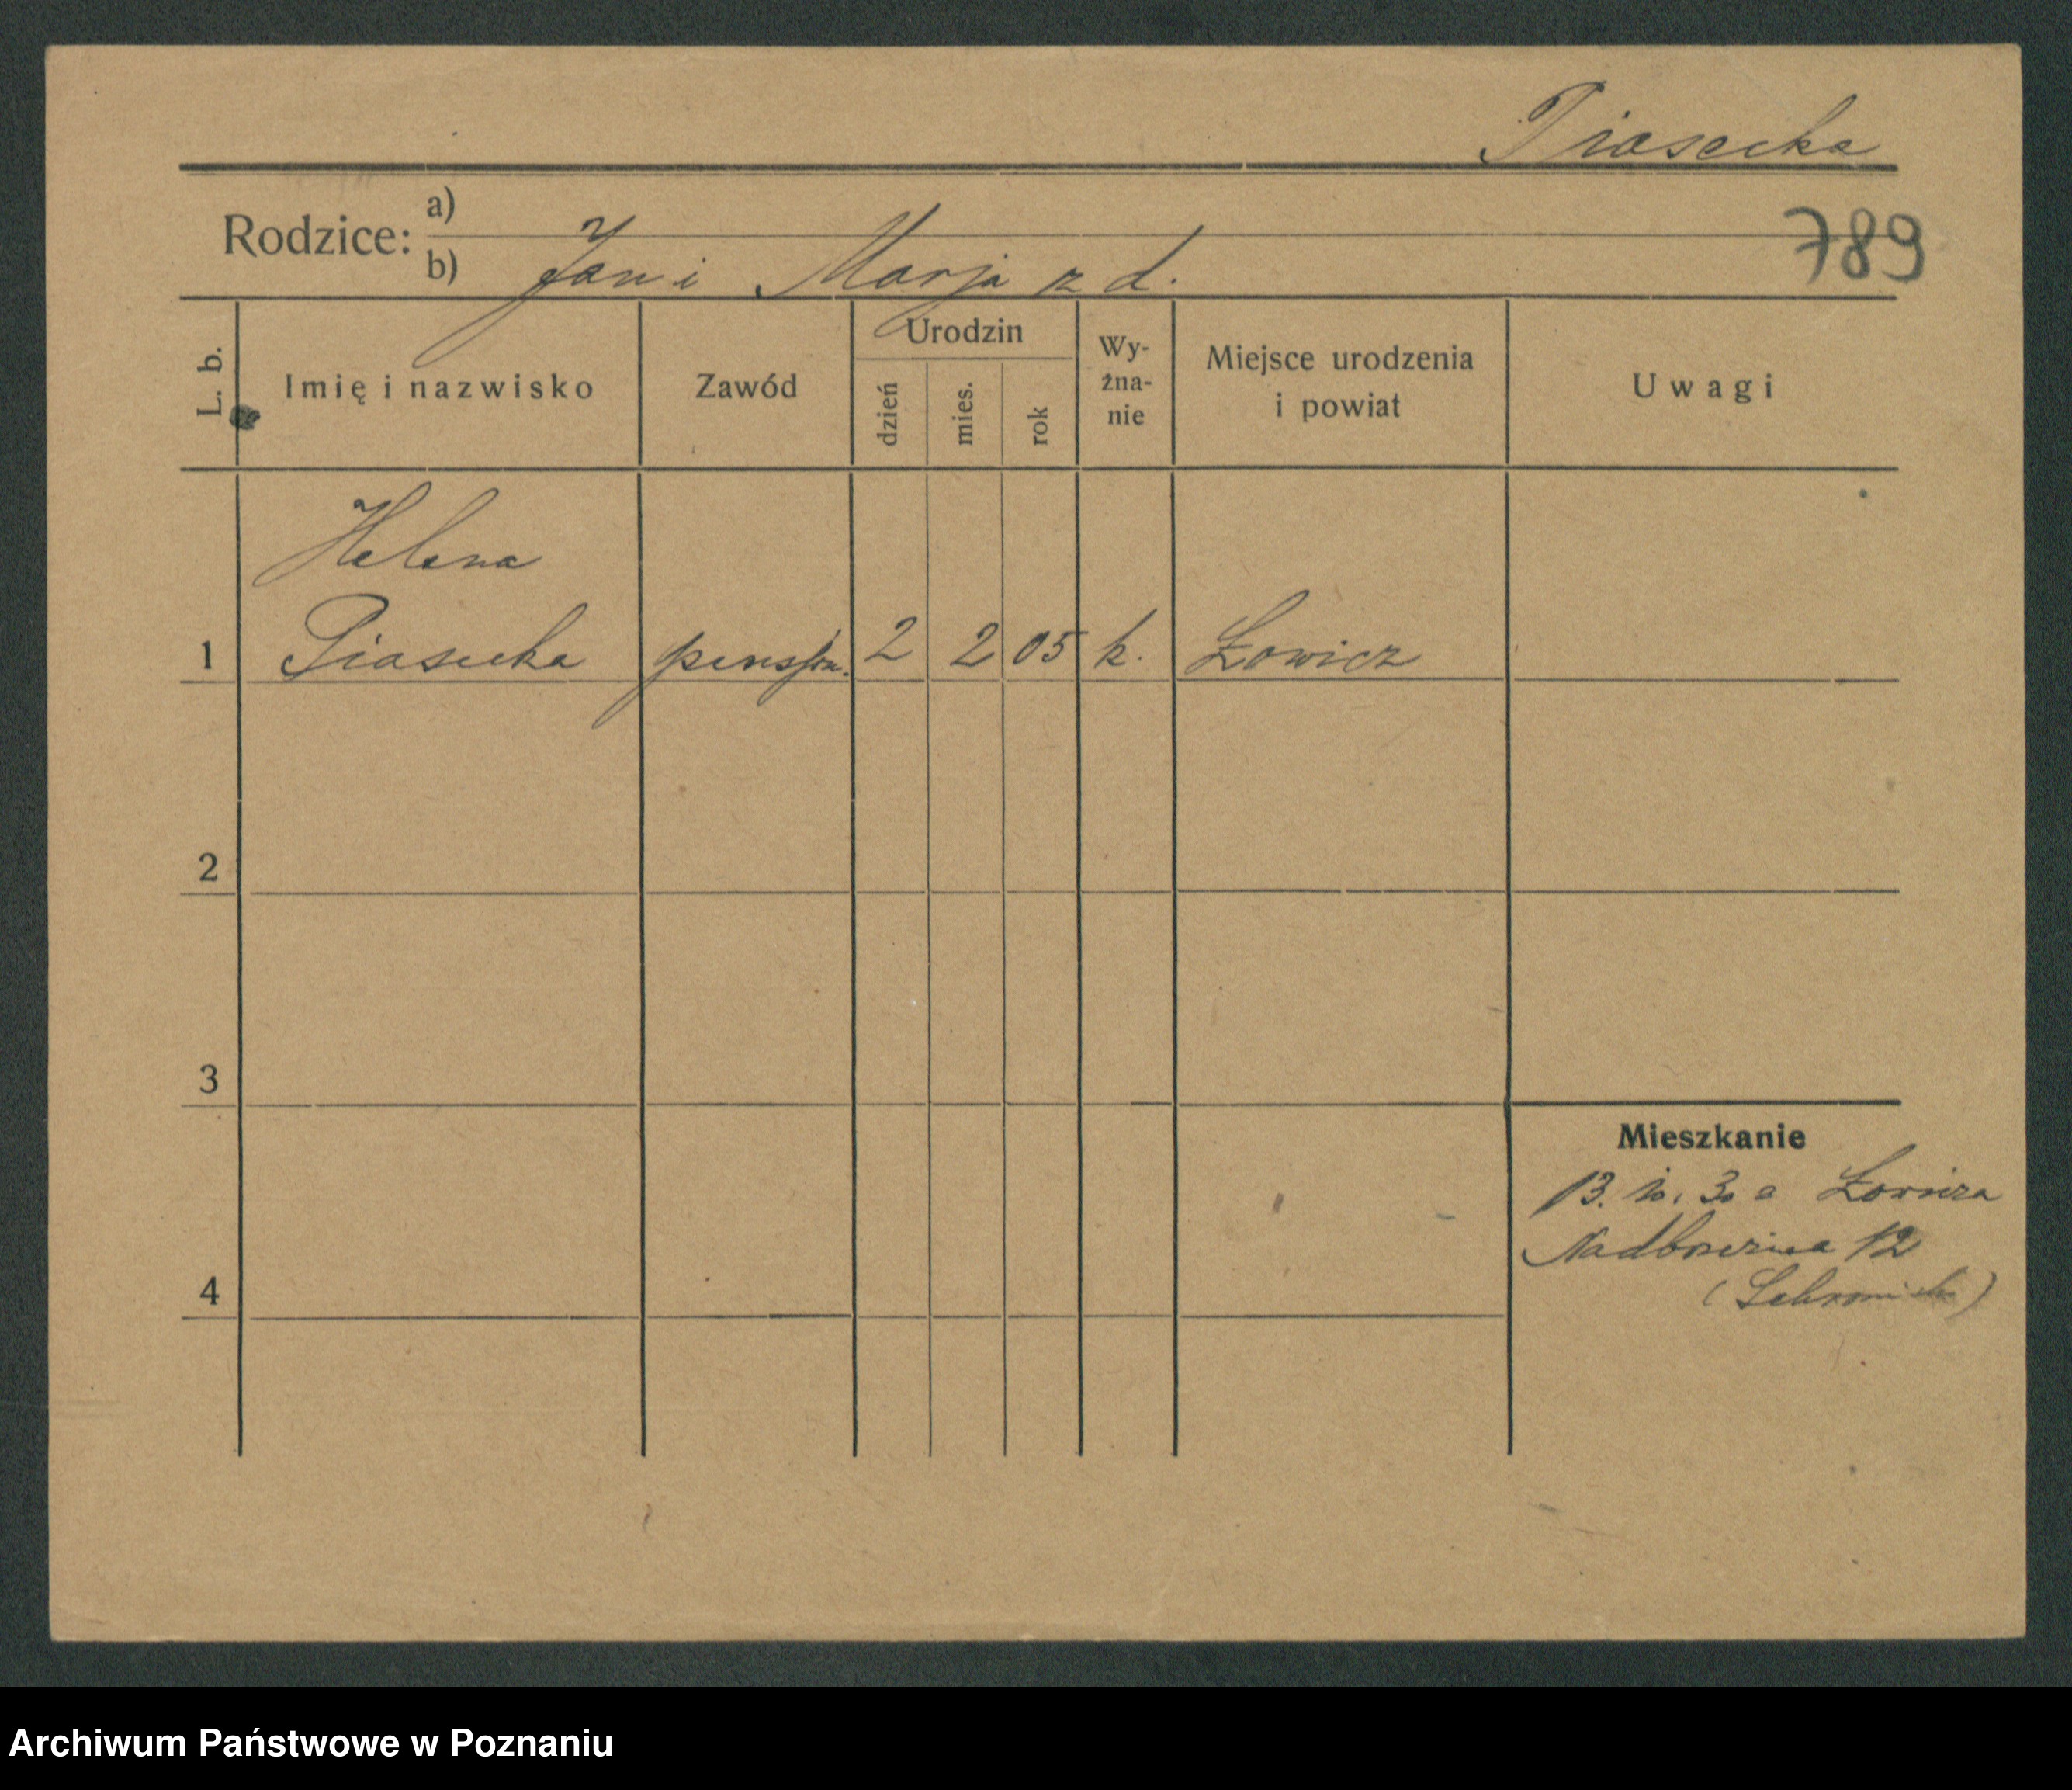 Piasecka
Rodzice: a)
b) Jan i Marja z d.
789
L. b.
Imię i nazwisko
Zawód
Urodzin
dzień
mies.
rok
Wy-
zna-
nie
Miejsce urodzenia
i powiat
Uwagi
Helena
1 Piasecka 2 2 05 k. Łowicz
2
3
4
Mieszkanie
13. 10. 30 z Łowicza
12
Archiwum Państwowe w Poznaniu